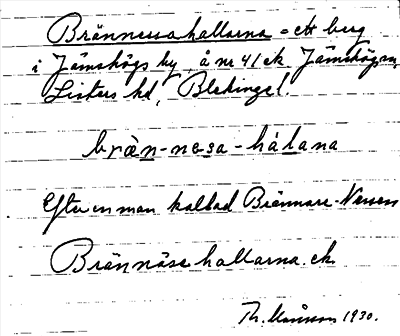 Brännessahallarna = ett berg
i Jämshögs by, å nr 41 ek Jämshögs sn,
Listers hd, Blekinge l.
bræ̀n-nesa-hálana
Efter en man kallad Brännare-Nessen
Brännäsehallarna. ek
Th. 1930.